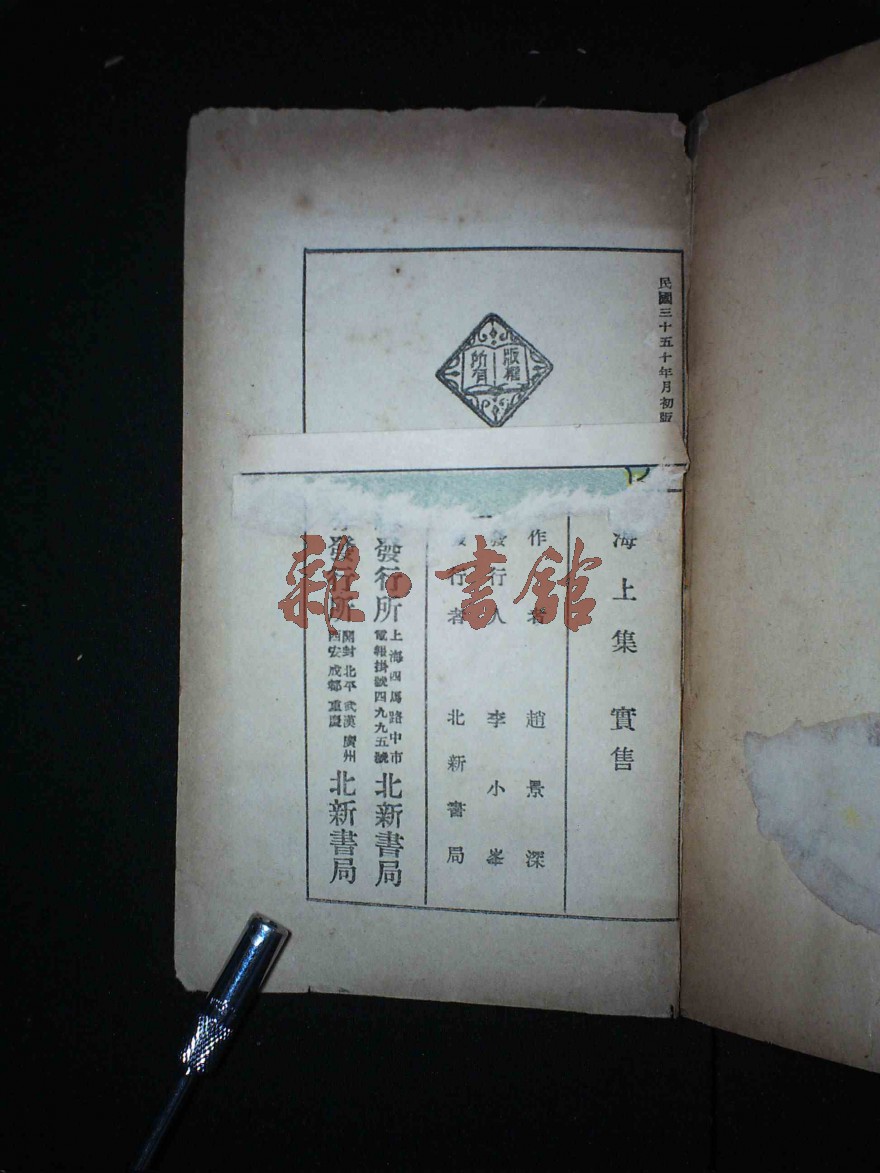 民國三十五年十月初版
版權
所有
海上集 實售
作者 趙景深
發行人 李小峯
發行者 北新書局
發行所 上海四馬路中市 電報掛號四九九五號 北新書局
發行所 開封 北平 武漢 廣州 西安 成都 重慶 北新書局
雜·書館